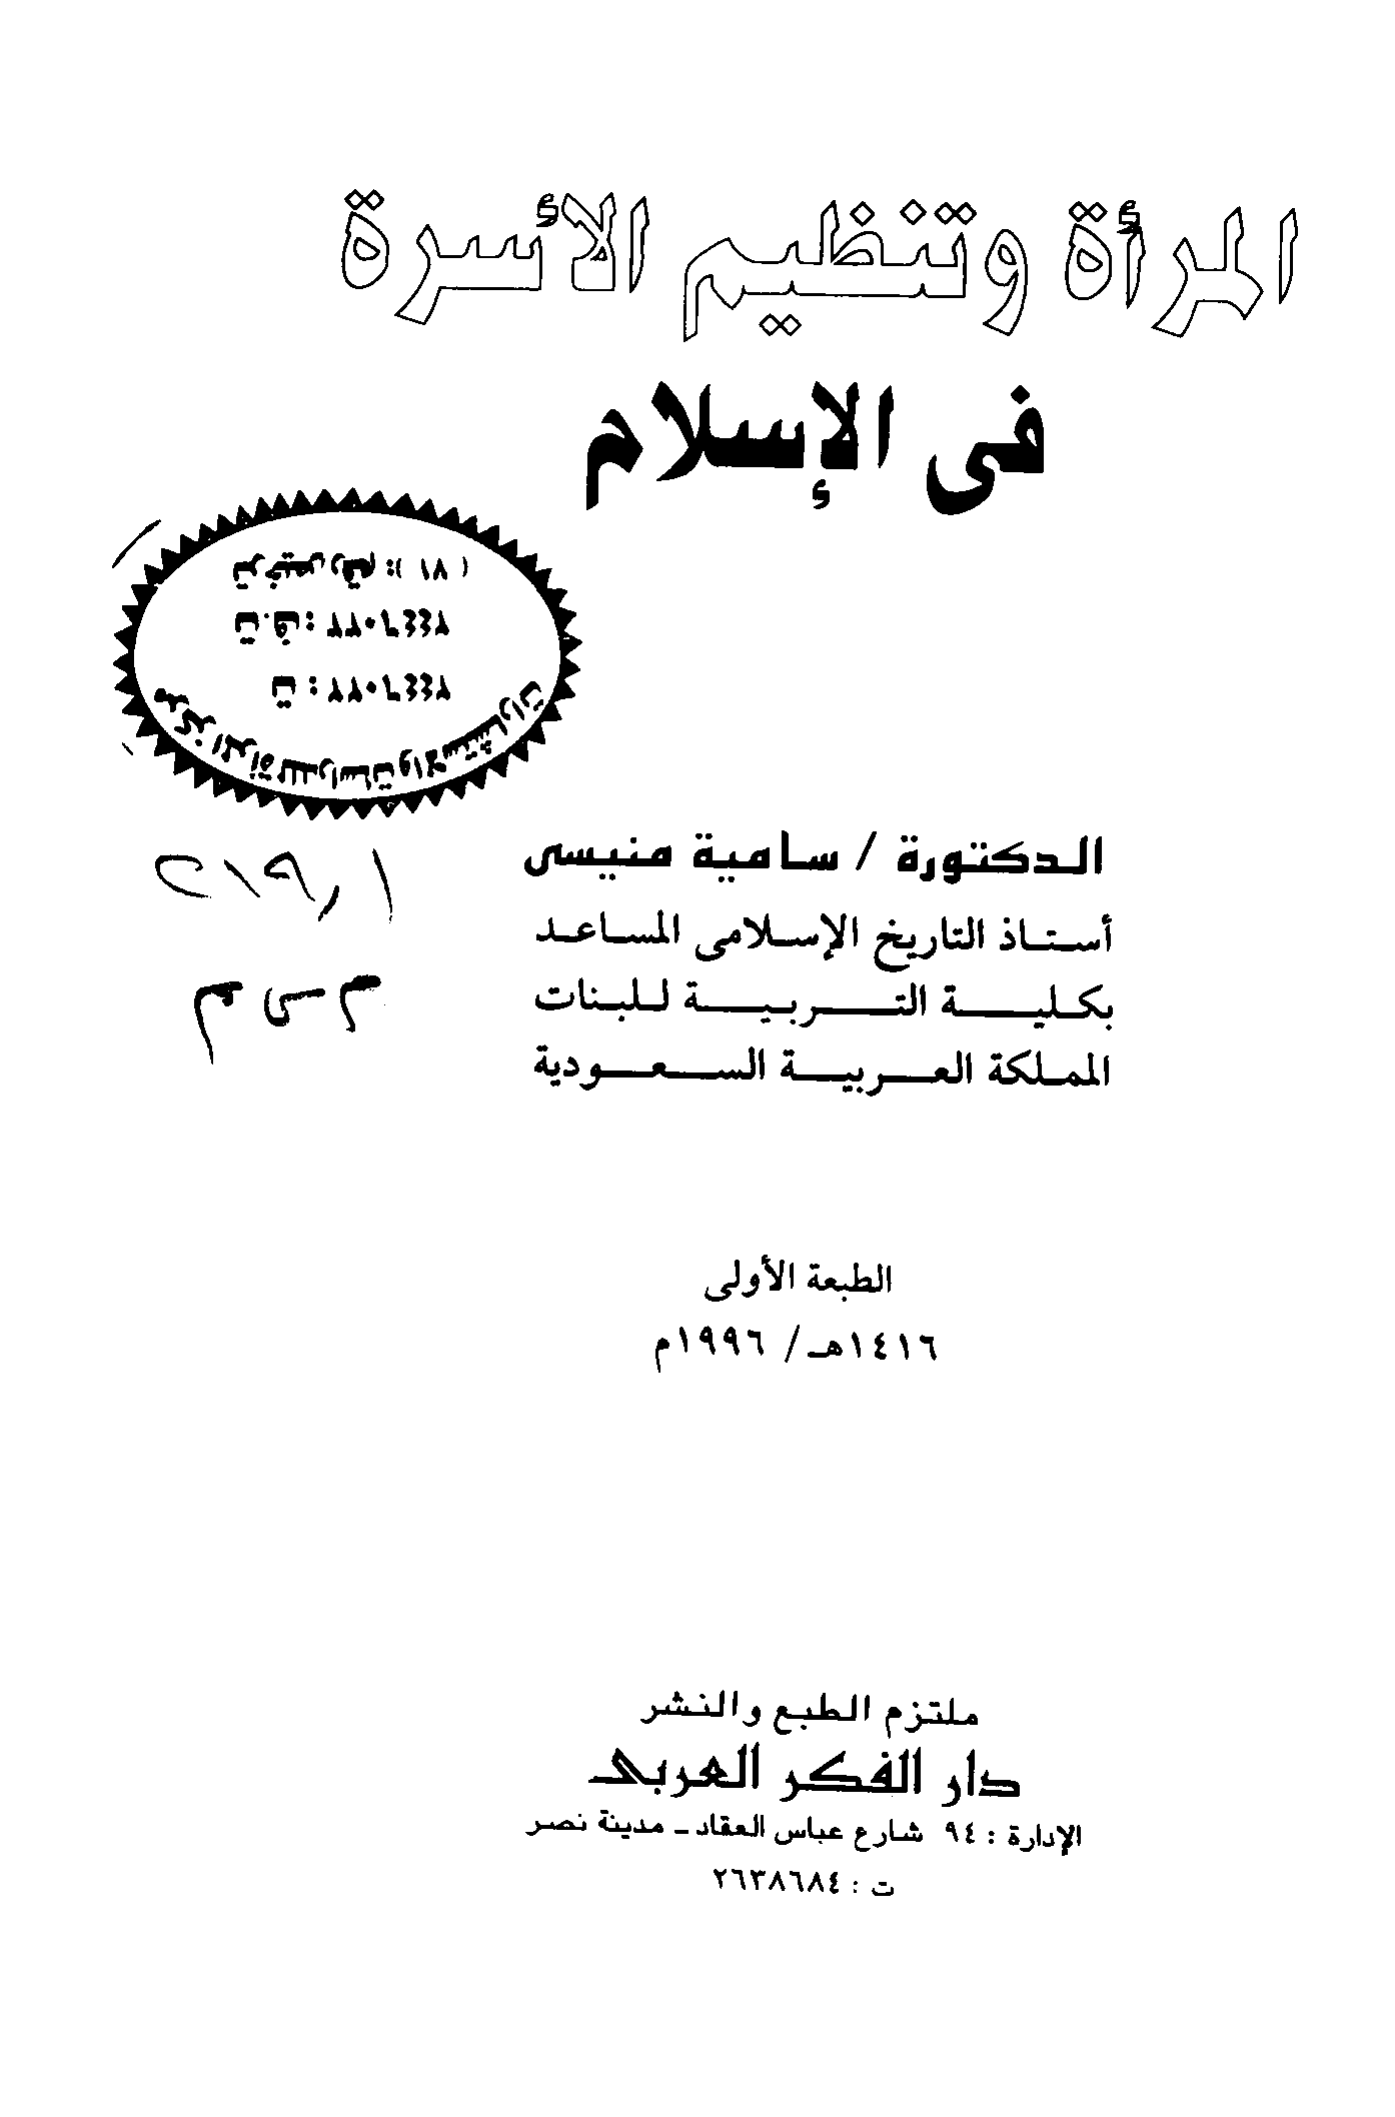 المرأة وتنظيم الأسرة
فى الإسلام
مركز المرأة للدراسات والاستشارات
الدكتورة / سامية منيسى
أستاذ التاريخ الإسلامى المساعد
بكلية التربية للبنات
المملكة العربية السعودية
الطبعة الأولى
١٤١٦هـ / ١٩٩٦م
ملتزم الطبع والنشر
دار الفكر العربى
الإدارة : ٩٤ شارع عباس العقاد - مدينة نصر
ت : ٢٦٣٨٦٨٤